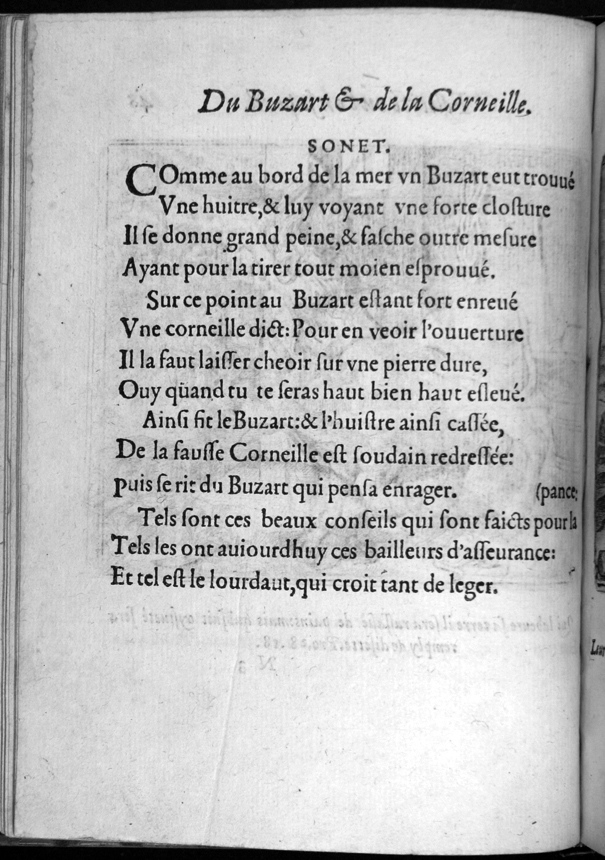 Du Buzart & de la Corneille.
SONET.
COmme au bord de la mer vn Buzart eut trouué
Vne huitre,& luy voyant vne forte closture
Il se donne grand peine,& fasche outre mesure
Ayant pour la tirer tout moien esprouué.
Sur ce point au Buzart estant fort enreué
Vne corneille dict: Pour en veoir l'ouuerture
Il la faut laisser cheoir sur vne pierre dure,
Ouy quand tu te seras haut bien haut esleué.
Ainsi fit le Buzart:& l'huistre ainsi cassée,
De la fausse Corneille est soudain redressée:
Puis se rit du Buzart qui pensa enrager. (pance;
Tels sont ces beaux conseils qui sont faicts pour la
Tels les ont auiourdhuy ces bailleurs d'asseurance:
Et tel est le lourdaut,qui croit tant de leger.